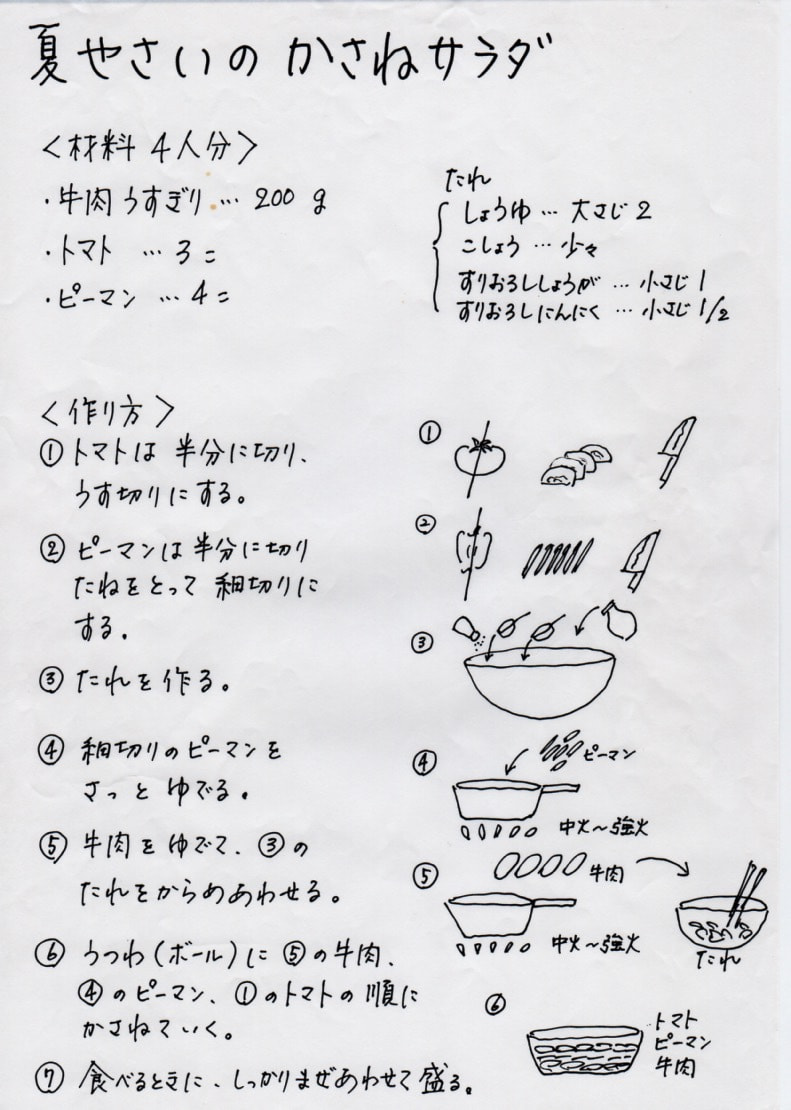 夏やさいのかさねサラダ
〈材料 4人分〉
・牛肉うすぎり … 200 g
・トマト … 3コ
・ピーマン … 4コ
たれ
しょうゆ … 大さじ 2
こしょう … 少々
すりおろししょうが … 小さじ 1
すりおろしにんにく … 小さじ 1/2
〈作り方〉
① トマトは 半分に切り、
うす切りにする。
② ピーマンは半分に切り
たねをとって 細切りに
する。
③ たれを作る。
④ 細切りのピーマンを
さっと ゆでる。
⑤ 牛肉をゆでて、③の
たれをからめあわせる。
⑥ うつわ(ボール)に ⑤の牛肉、
④のピーマン、①のトマトの順に
かさねていく。
⑦ 食べるときに、しっかりまぜあわせて盛る。
①
②
③
④
ピーマン
中火〜強火
⑤
牛肉
中火〜強火
たれ
⑥
トマト
ピーマン
牛肉